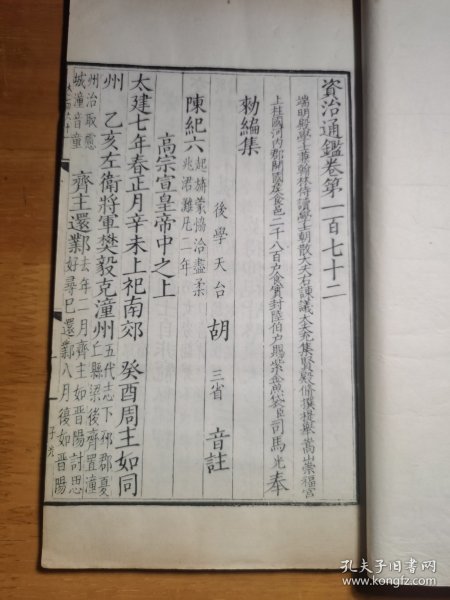 資治通鑑卷第一百七十二
端明殿學士兼翰林侍讀學士朝散大夫右諫議大夫充集賢殿脩撰提舉嵩山崇福宮
上柱國河內郡開國侯食邑二千八百戶食實封陸伯戶賜紫金魚袋臣司馬光奉
勑編集
後學天台胡三省音註
陳紀六起旃蒙協洽盡柔兆涒灘凡二年
高宗宣皇帝中之上
太建七年春正月辛未上祀南郊 癸酉周主如同
州 乙亥左衛將軍樊毅克潼州五代志下邳郡夏丘縣梁後齊置潼
州治取慮城潼音童 齊主還鄴去年二月齊主如晉陽討思好尋已還鄴八月復如晉陽
孔夫子旧书网
www.kongfz.com